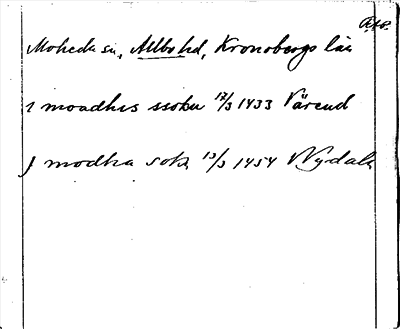 Moheda sn, Allbo hd, Kronobergs län
i moadhis ssokn 12/3 1433 Värend
J modha sokn 13/3 1454 Nydala